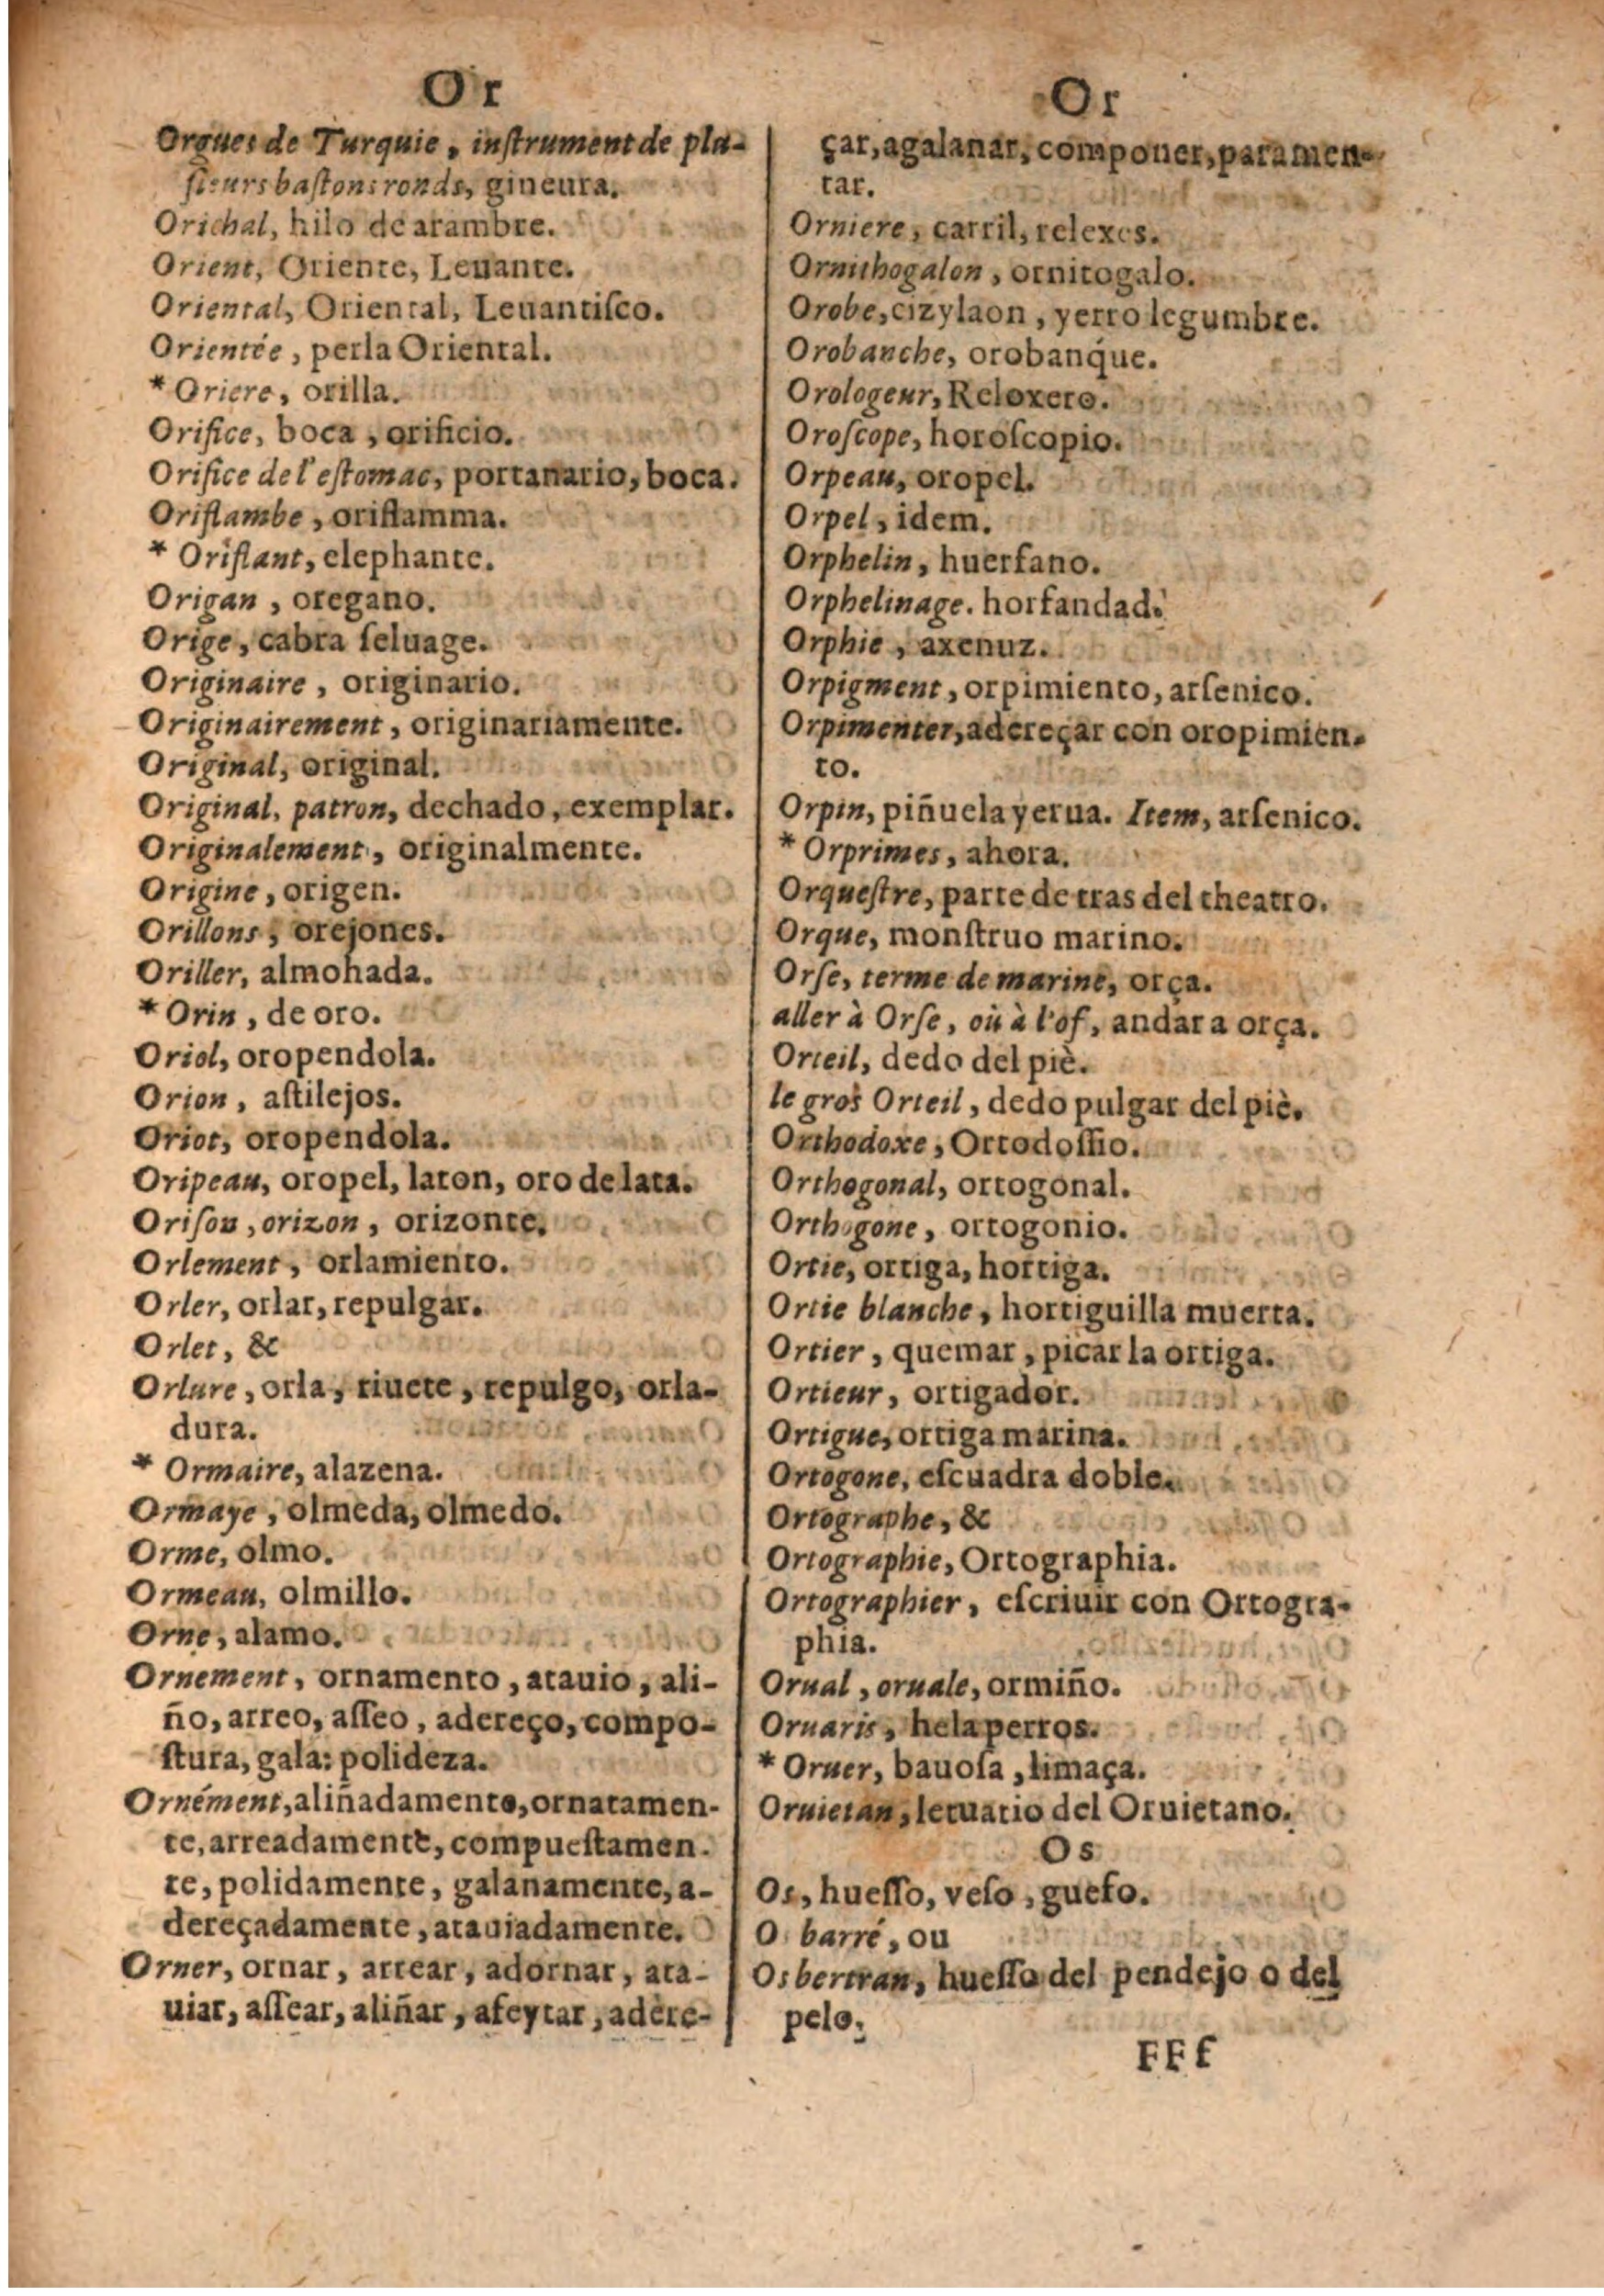 Or
Orgues de Turquie, inſtrument de plu-
ſieurs baſtons ronds, gineura.
Orichal, hilo de arambre.
Orient, Oriente, Leuante.
Oriental, Oriental, Leuantiſco.
Orientée, perla Oriental.
* Oriere, orilla.
Orifice, boca, orificio.
Orifice de l'eſtomac, portanario, boca.
Oriflambe, oriflamma.
* Oriflant, elephante.
Origan, oregano.
Orige, cabra ſeluage.
Originaire, originario.
Originairement, originariamente.
Original, original.
Original, patron, dechado, exemplar.
Originalement, originalmente.
Origine, origen.
Orillons, orejones.
Oriller, almohada.
* Orin, de oro.
Oriol, oropendola.
Orion, aſtilejos.
Oriot, oropendola.
Oripeau, oropel, laton, oro de lata.
Oriſou, orizon, orizonte.
Orlement, orlamiento.
Orler, orlar, repulgar.
Orlet, &
Orlure, orla, riuete, repulgo, orla-
dura.
* Ormaire, alazena.
Ormaye, olmeda, olmedo.
Orme, olmo.
Ormeau, olmillo.
Orne, alamo.
Ornement, ornamento, atauio, ali-
ño, arreo, aſſeo, adereço, compo-
ſtura, gala: polideza.
Ornément, aliñadamente, ornatamen-
te, arreadamente, compueſtamen-
te, polidamente, galanamente, a-
dereçadamente, atauiadamente.
Orner, ornar, arrear, adornar, ata-
uiar, aſſear, aliñar, afeytar, adere-
Or
çar, agalanar, componer, paramen-
tar.
Orniere, carril, relexes.
Ornithogalon, ornitogalo.
Orobe, cizylaon, yerro legumbre.
Orobanche, orobanque.
Orologeur, Reloxero.
Oroſcope, horoſcopio.
Orpeau, oropel.
Orpel, idem.
Orphelin, huerfano.
Orphelinage. horfandad.
Orphie, axenuz.
Orpigment, orpimiento, arſenico.
Orpimenter, adereçar con oropimien-
to.
Orpin, piñuela yerua. Item, arſenico.
* Orprimes, ahora.
Orqueſtre, parte de tras del theatro.
Orque, monſtruo marino.
Orſe, terme de marine, orça.
aller à Orſe, où à l'of, andar a orça.
Orteil, dedo del piè.
le gros Orteil, dedo pulgar del piè.
Orthodoxe, Ortodoſſio.
Orthogonal, ortogonal.
Orthogone, ortogonio.
Ortie, ortiga, hortiga.
Ortie blanche, hortiguilla muerta.
Ortier, quemar, picar la ortiga.
Ortieur, ortigador.
Ortigue, ortiga marina.
Ortogone, eſcuadra doble.
Ortographe, &
Ortographie, Ortographia.
Ortographier, eſcriuir con Ortogra-
phia.
Orual, oruale, ormiño.
Oruaris, helaperros.
* Oruer, bauoſa, limaça.
Oruietan, letuario del Oruietano.
Os
Os, hueſſo, veſo, gueſo.
O barré, ou
Os bertran, hueſſo del pendejo o del
pelo.
FFf